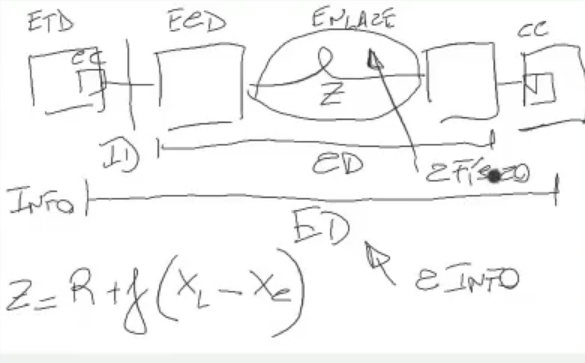 ETD ECD ENLACE CC
CC
Z
ID
ED
INFO
ED
E INFO
Z = R + j (X_L - X_C)